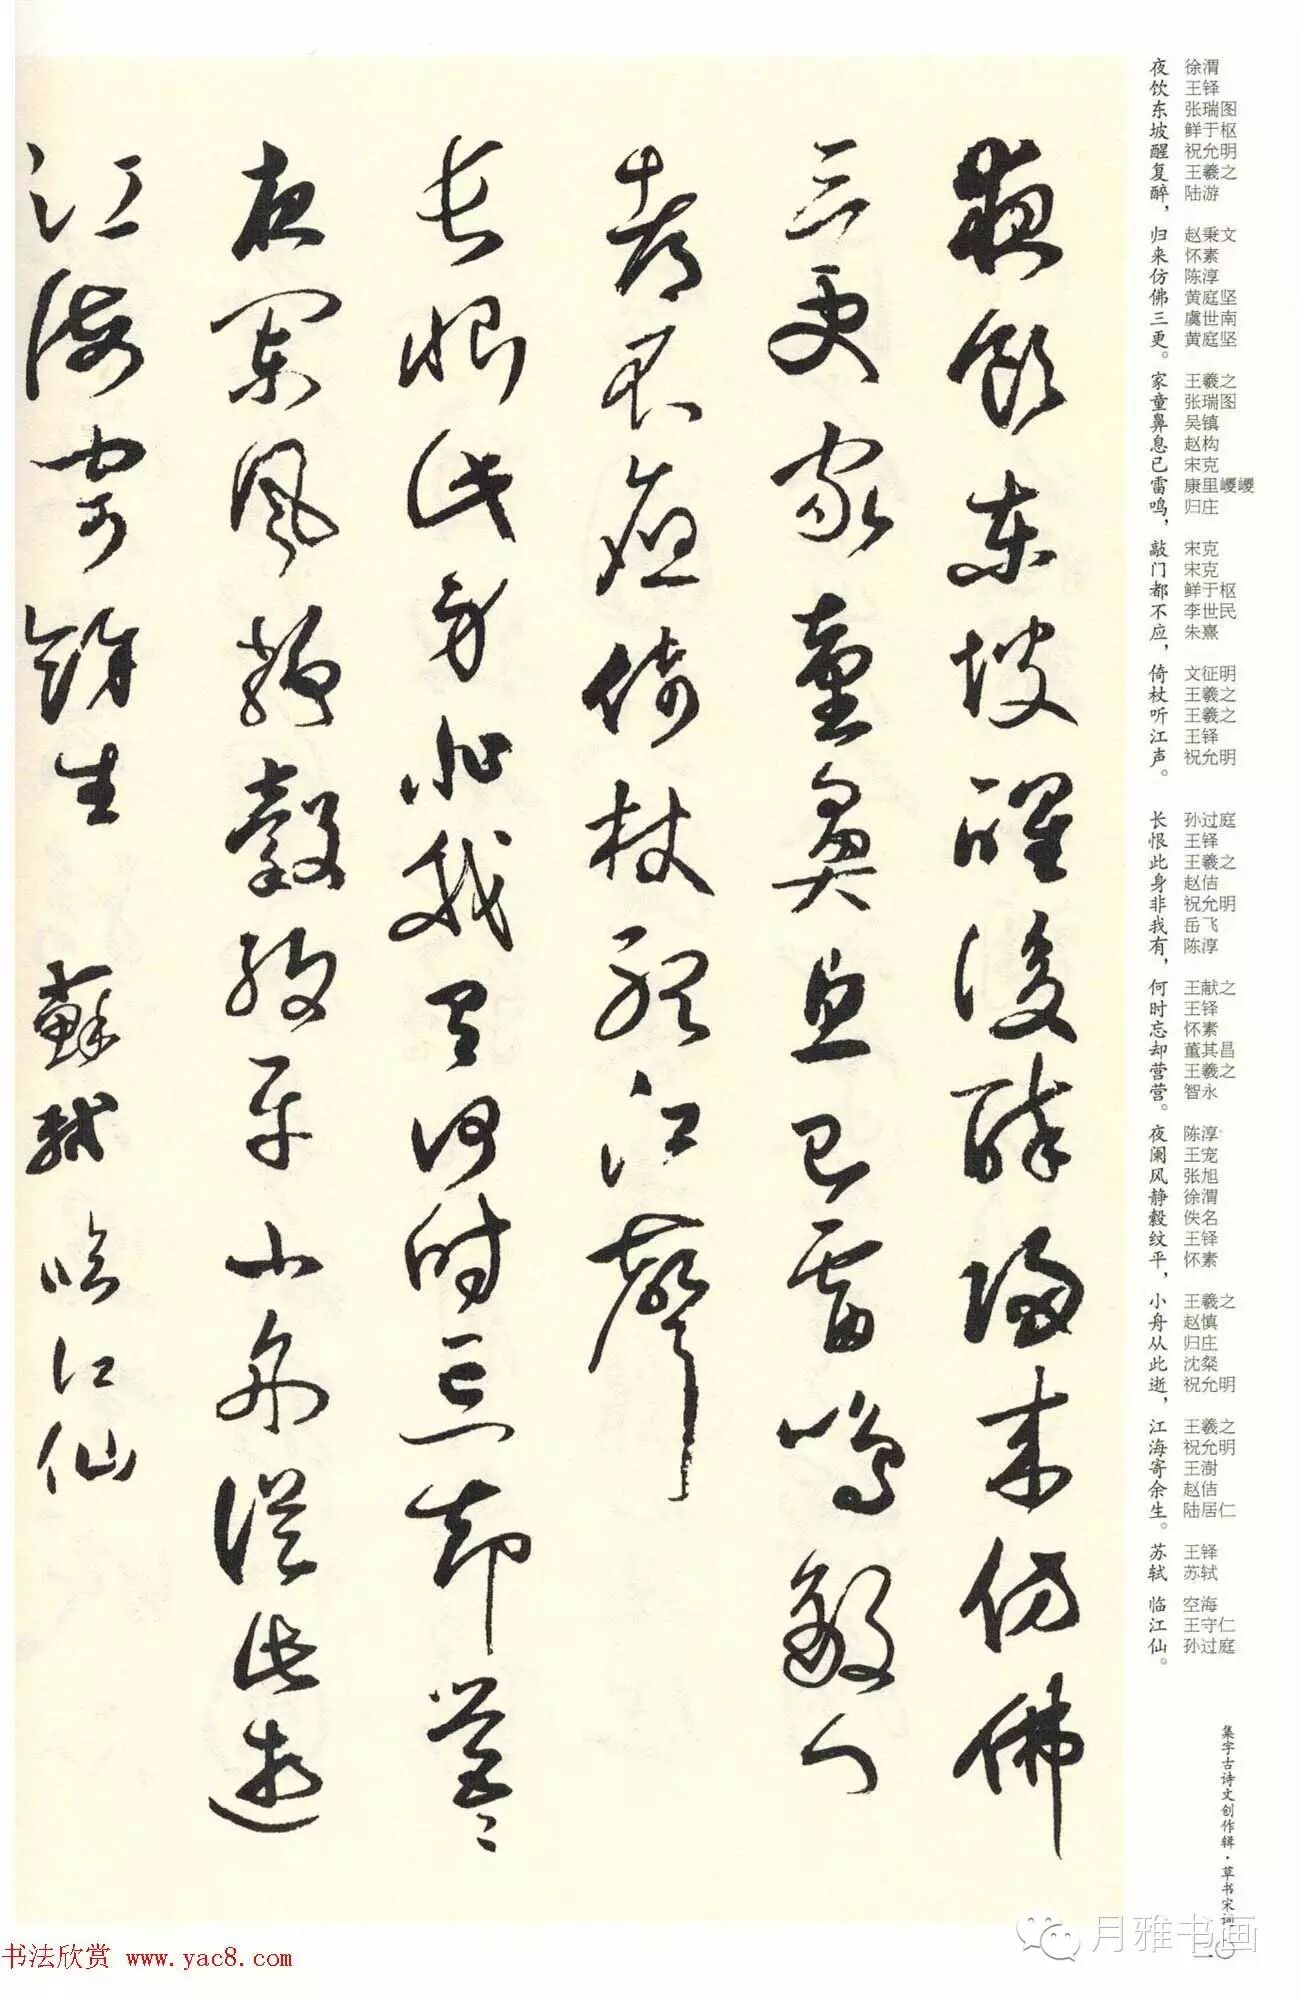 夜飲東坡醒復醉歸來仿佛
三更家童鼻息已雷鳴敲門
都不應倚杖聽江聲
長恨此身非我有何時忘却營々
夜闌風靜縠紋平小舟從此逝
江海寄餘生 蘇軾 臨江仙
徐渭 王铎 张瑞图 鲜于枢 祝允明 王羲之 陆游 赵秉文 怀素 陈淳 黄庭坚 虞世南 黄庭坚 王羲之 张瑞图 吴镇 赵构 宋克 康里巎巎 归庄 宋克 宋克 鲜于枢 李世民 朱熹 文征明 王羲之 王羲之 王铎 祝允明 孙过庭 王铎 王羲之 赵佶 祝允明 岳飞 陈淳 王献之 王铎 怀素 董其昌 王羲之 智永 陈淳 王宠 张旭 徐渭 佚名 王铎 怀素 王羲之 赵慎 归庄 沈粲 祝允明 王羲之 祝允明 王澍 赵佶 陆居仁 王铎 苏轼 空海 王守仁 孙过庭
夜饮东坡醒复醉，归来仿佛三更。家童鼻息已雷鸣，敲门都不应，倚杖听江声。 长恨此身非我有，何时忘却营营。夜阑风静縠纹平，小舟从此逝，江海寄余生。苏轼 临江仙。
集字古诗文创作辑·草书宋词
二〇
月雅书画
书法欣赏 www.yac8.com